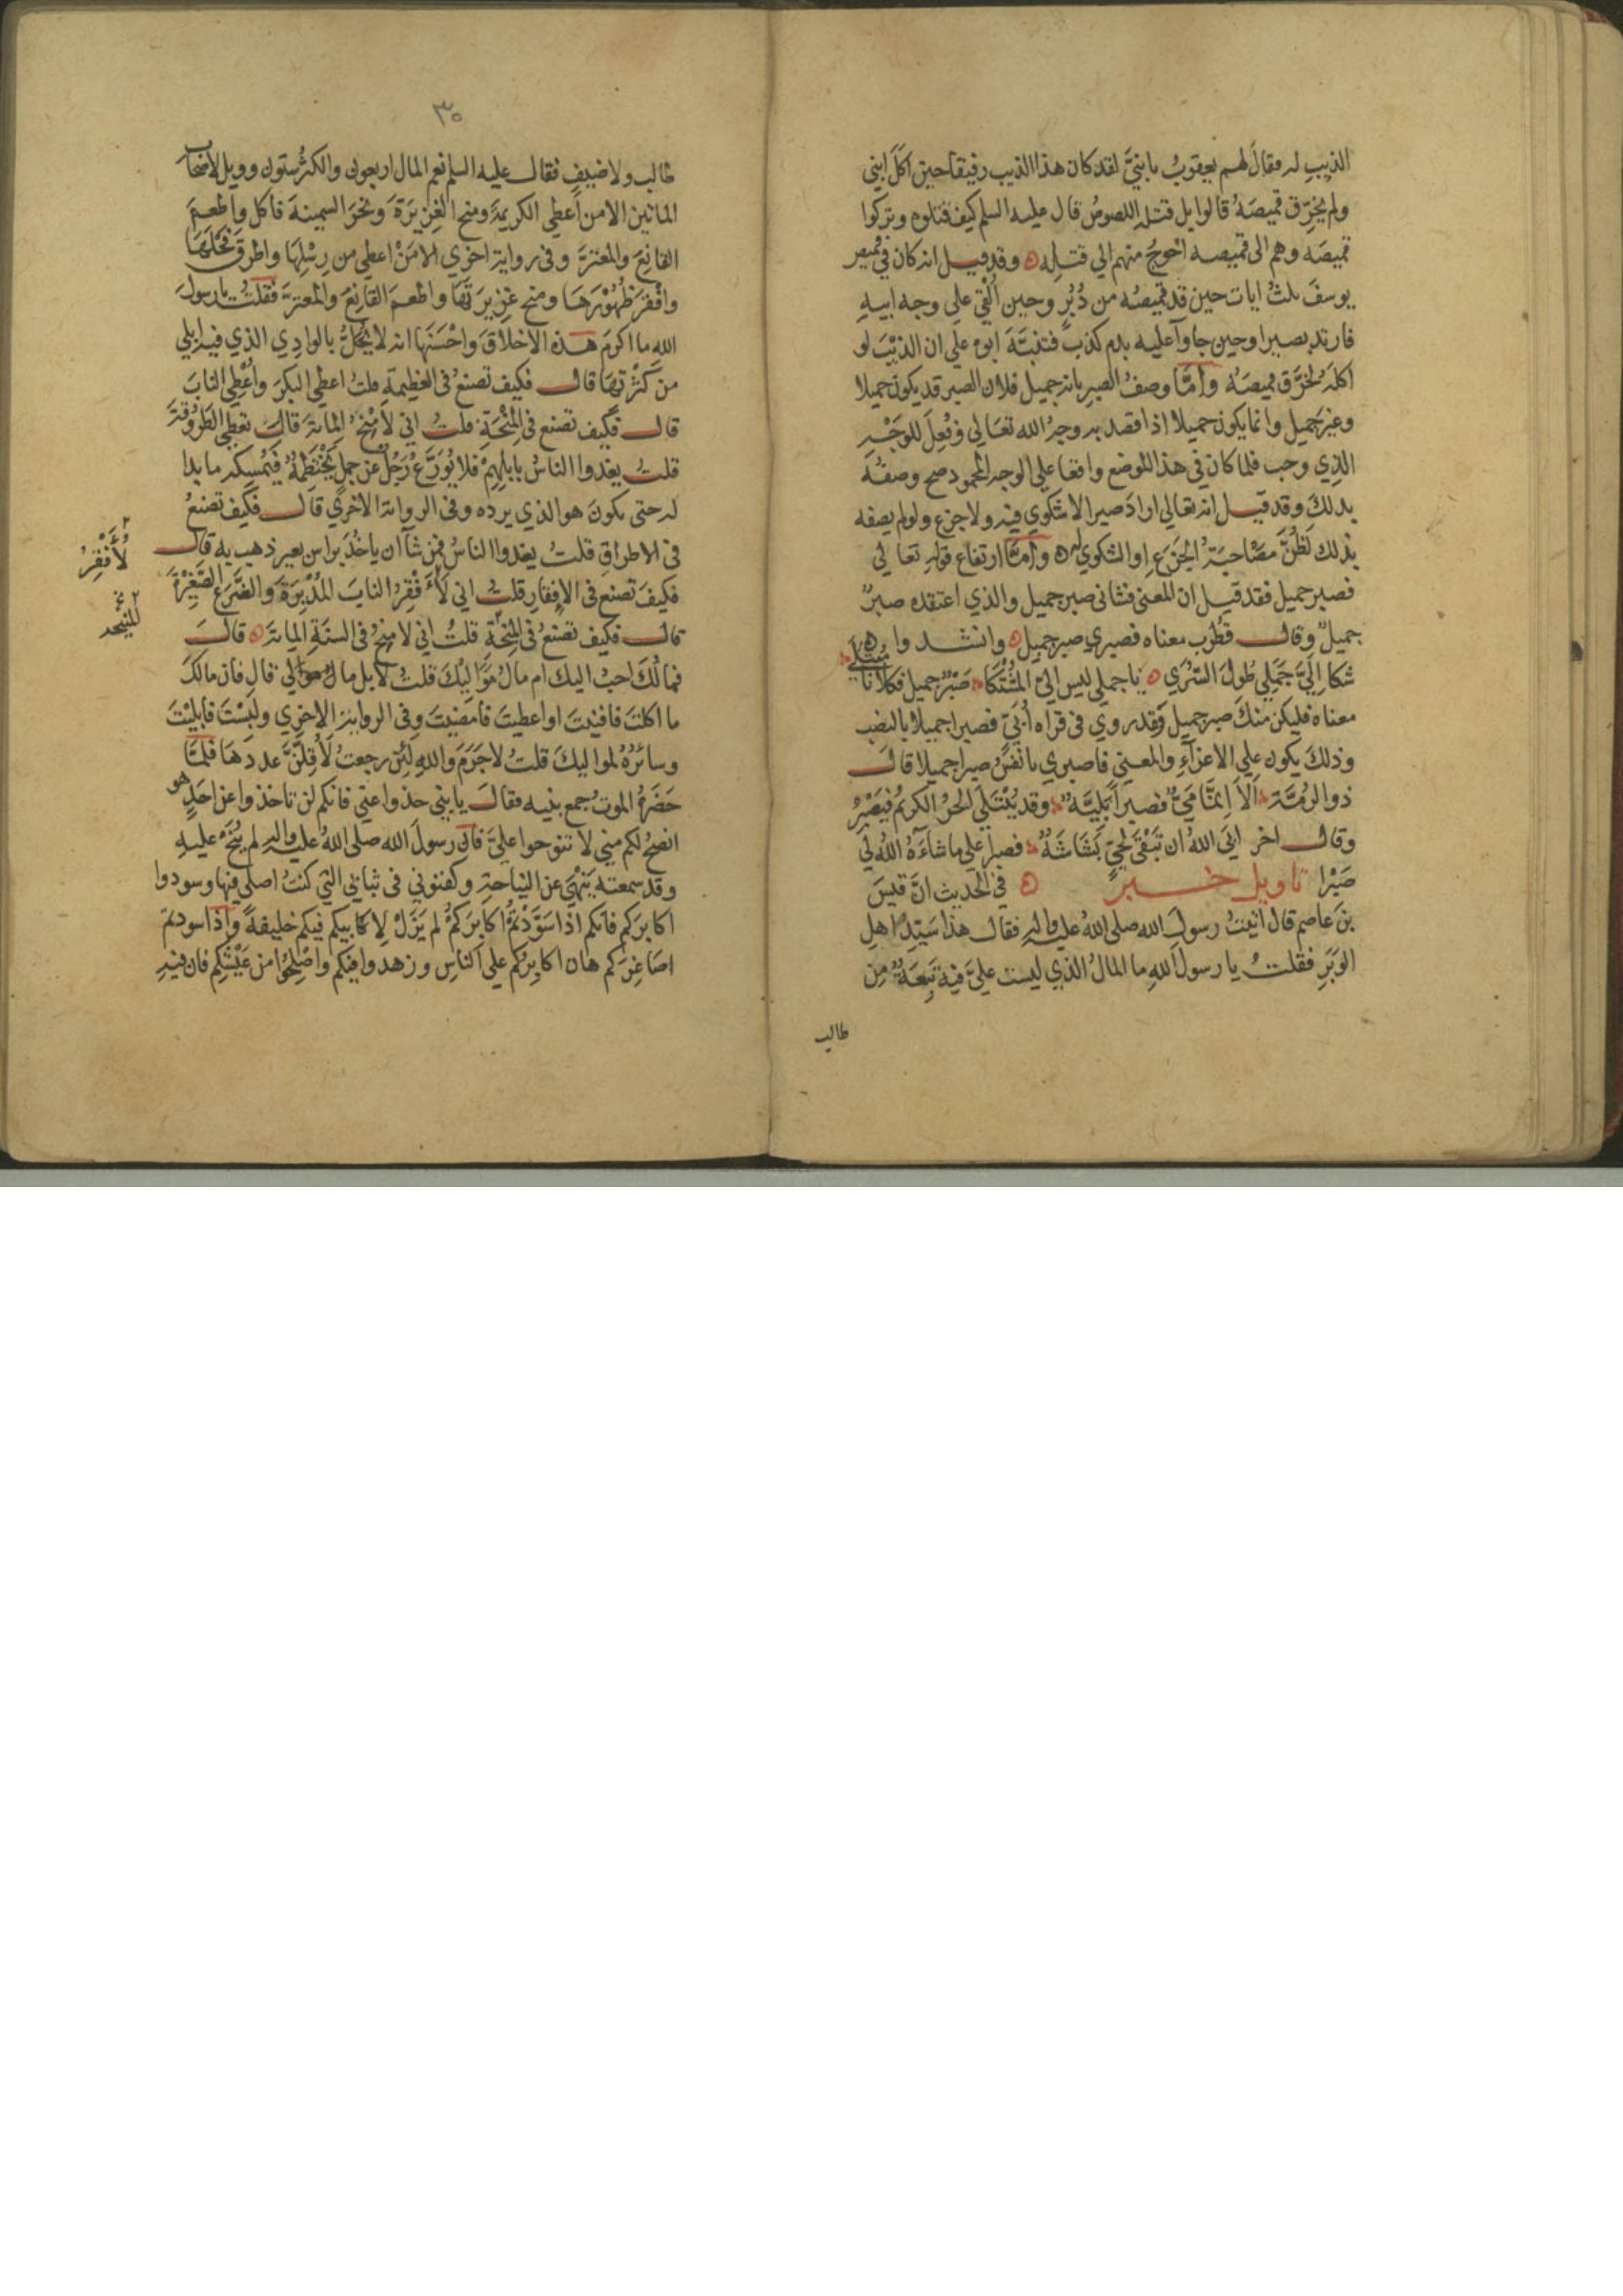 الذيب له فقال لهم يعقوب يا بنيَّ لقد كان هذا الذيب رفيقا حين اكل ابني
ولم يخرّق قميصه قالوا بل قتله اللصوص قال عليه السلم كيف قتلوه وتركوا
قميصه وهم الى قميصه احوج منهم الي قتله وقد قيل انه كان في قميص
يوسف ثلث ايات حين قد قميصه من دُبُرٍ وحين اُلقي علي وجه ابيه
فارتد بصيرا وحين جاوا عليه بدم كذب فتنبّه ابوه علي ان الذئب لو
اكله لخرّق قميصه وأمّا وصف الصبر بانه جميل فلان الصبر قد يكون جميلا
وغير جميل وانما يكون جميلا اذا قصد به وجه الله تعالي وفُعِلَ للوَجْهِ
الذي وجب فلما كان في هذا الموضع واقعا علي الوجه المحمود صح وصفه
بذلك وقد قيل انه تعالي اراد صبرا لا شكوي فيه ولا جزع ولو لم يصفه
بذلك لَظُنَّ مصاحبة الجزع او الشكوي له وأمّا ارتفاع قوله تعالي
فصبر جميل فقد قيل ان المعني فشاني صبر جميل والذي اعتقده صبر
جميل وقال قُطْرُب معناه فصبري صبر جميل وانشدوا
شكا اِلَيَّ جَمَلِي طُولَ السُّرَي يا جملي ليس اليّ المُشْتَكَا صَبْرٌ جميل فكلانا مُبْتَلَي
معناه فليكن منك صبر جميل وقد روي في قراه أُبَيّ فصبرا جميلا بالنصب
وذلك يكون علي الاغراء والمعني فاصبري يا نفس صبرا جميلا قال
ذو الرُمَّة ألاَ اِنّما مَيٌّ فصبراً بَلِيَّةٌ وقد يُبْتَلَي الحرُّ الكريمُ فيَصْبِرُ
وقال اخر ابَى اللهُ ان تَبْقَى لِحَيٍّ بَشَاشَةٌ فصبرا علي ما شاءَهُ اللهُ لي
صَبْرا تاويل خبر في الحديث انّ قيس
بن عاصم قال اتيتُ رسول الله صلى الله عليه واله فقال هذا سَيِّدُ اهل
الوَبَرِ فقلتُ يا رسول الله ما المالُ الذي ليست عليَّ فيه تَبِعَةٌ مِن
طالب
٣٠
طالب ولا ضيف فقال عليه السلم نعم المال اربعون والكثر ستون وويل لاصحاب
المائين الا من أعطي الكريمة ومنح الغزيرة ونحر السمينة فاكل واطعم
القانع والمعتر وفي رواية اخري الا مَنْ اعطي من رِسْلِهَا واطرق فَحْلَهَا
وافْقَرَ ظُهُوْرَهَا ومنح غزيرتَهَا واطعمَ القانِعَ والمعترَّ فقلت يا رسول
الله ما اكرم هذه الاخلاق واحْسَنَهَا انه لا يُحَلُّ بالوادي الذي فيه ابلي
من كثرتها قال فكيف تصنع في العطيمة قلت اعطي البكر وأُعْطِي الناب
قال فكيف تصنع في المِنْحَةِ قلت اني لَأَمْنَحُ المائة قال تعطي الطَرُوقَةَ
قلت يغدوا الناسُ بابلهم فلا يُوَزَّعُ رَجُلٌ عن جملٍ يَخْتَطِمُهُ فيُمْسِكه ما بدا
له حتى يكون هو الذي يرده وفي الرواية الاخري قال فكيف تصنعُ
في الاطراق قلت يغدوا الناس فمن شآ ان ياخذ براس بعير ذهب به قال
فكيف تصنع في الاِفقارِ قلت اني لأُفْقِرُ النابَ المُدْبِرَةَ والضَّرَعَ الصَّغِيْرَةَ
لأُفْقِرُ
قال فكيف تصنعُ في المِنْحَةِ قلتُ اني لامنحُ في السنةِ المِاىةَ قال
فمالُكَ احبُ اليك ام مالُ مَوَالِيْكَ قلتُ لا بل مالي قال فان مالكَ
ما اكلتَ فافنيتَ او اعطيتَ فامضيتَ وفي الرواية الاخري ولَبِسْتَ فابليْتَ
وسائرُهُ لمواليكَ قلتُ لاجَرَمَ والله لَئِن رجعتُ لَأُقِلَّنَّ عددَهَا فلمّا
حَضَرَهُ الموتُ جمع بنيه فقال يا بني خذوا عني فانكم لن تاخذوا عن احَدٍ هو
انصحُ لكم مني لا تنوحوا عليَّ فان رسول الله صلى الله عليه واله لم يُنَحْ عليه
وقد سمعته يَنْهَى عن النياحة وكفنوني في ثيابي التي كنتُ اصلي فيها وسودوا
اكابرَكم فانكم اذا سَوَّدْتُمْ اكابرَكُمْ لم يَزَلْ لِاَكابيكم فيكم خليفةٌ واذا سودتم
اصَاغِرَكم هان اكابِرُكم على الناسِ وزهدوا فيكم واصْلِحُوا من عَيْشِكم فان فيه